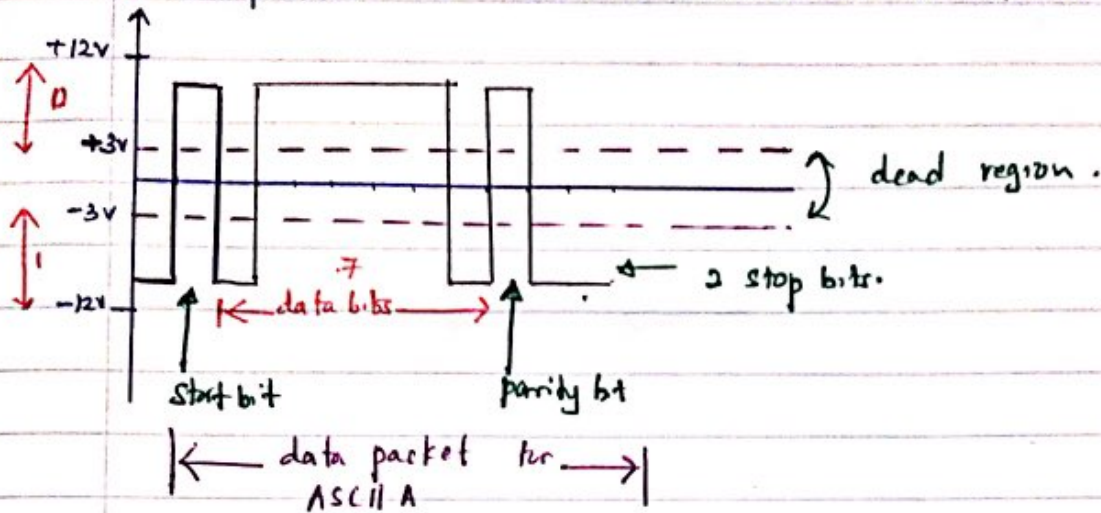 +12v
0
+3v
dead region.
-3v
1
7
data bits
2 stop bits.
-12v
start bit
parity bt
data packet for
ASCII A